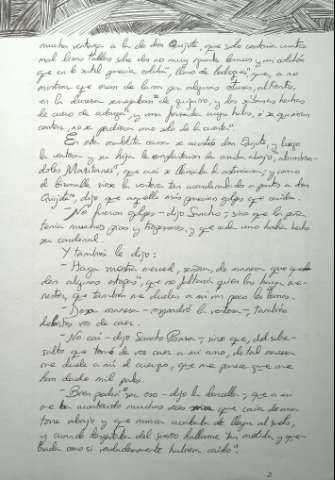 mucha ventaja a la de don Quijote, que sólo contenía cuatro
mal lisas tablas sobre dos no muy iguales bancos y un colchón
que en lo sutil parecía colcha, lleno de bodoques, que, a no
mostrar que eran de lana por algunas roturas, al tiento,
en la dureza semejaban de guijarro, y dos sábanas hechas
de cuero de adarga, y una frazada cuyos hilos, si se quisieran
contar, no se perdiera uno solo de la cuenta".
En esta maldita cama se acostó don Quijote, y luego
la ventera y su hija le emplastaron de arriba abajo, alumbrán-
doles Maritornes, que así se llamaba la asturiana; y como
al bizmalle viese la ventera tan acardenalado a partes a don
Quijote, dijo que aquello más parecían golpes que caída.
-"No fueron golpes - dijo Sancho; sino que la peña
tenía muchos picos y tropezones, y que cada uno había hecho
su cardenal.
Y también le dijo:
- Haga vuestra merced, señora, de manera que queden
algunas estopas, que no faltará quien las haya me-
nester, que también me duelen a mí un poco los lomos.
- Desa manera - respondió la ventera -, también
debistes vos de caer.
- No caí - dijo Sancho Panza -, sino que, del sobre-
salto que tomé de ver caer a mi amo, de tal manera
me duele a mí el cuerpo, que me parece que me
han dado mil palos.
- Bien podrá ser eso - dijo la doncella -, que a mí
me ha acontecido muchas veces soñar que caía de una
torre abajo, y que nunca acababa de llegar al suelo,
y cuando despertaba del sueño hallarme tan molida y que-
brada como si verdaderamente hubiera caído".
2